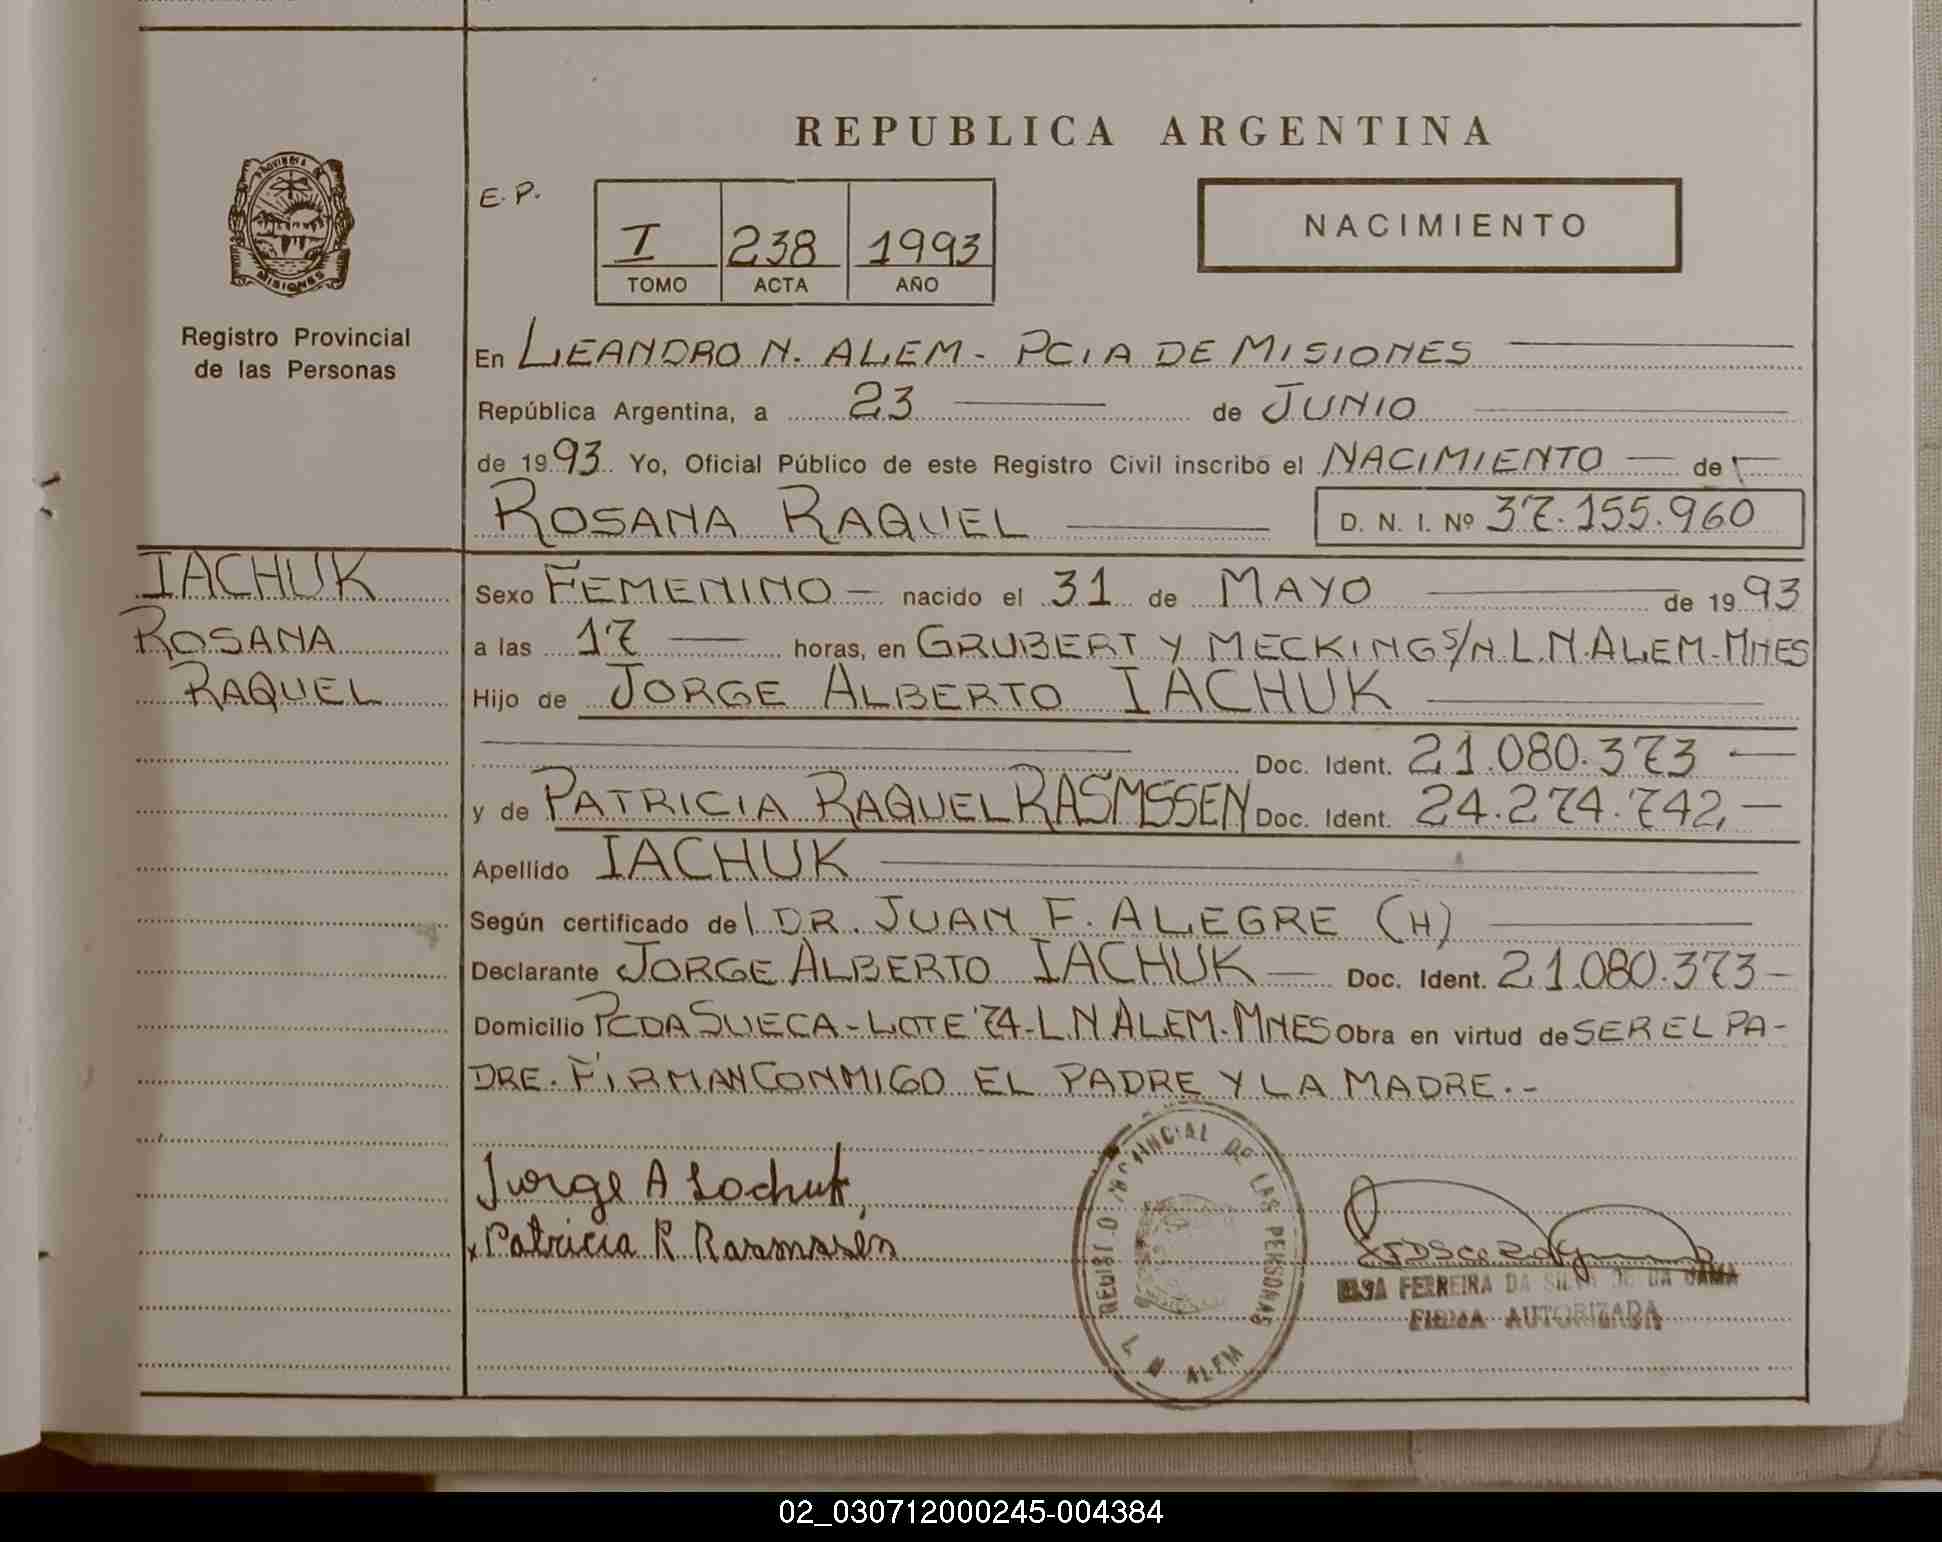 REPUBLICA ARGENTINA
PROVINCIA DE MISIONES
Registro Provincial
de las Personas
E. P.
I 238 1993
TOMO ACTA AÑO
NACIMIENTO
En LEANDRO N. ALEM - PCIA DE MISIONES
República Argentina, a 23 de JUNIO
de 1993. Yo, Oficial Público de este Registro Civil inscribo el NACIMIENTO de
ROSANA RAQUEL
D. N. I. Nº 37.155.960
IACHUK
ROSANA
RAQUEL
Sexo FEMENINO nacido el 31 de MAYO de 1993
a las 17 horas, en GRUBERT Y MECKING S/N L.N.ALEM-MNES
Hijo de JORGE ALBERTO IACHUK
Doc. Ident. 21.080.373
y de PATRICIA RAQUEL RASMSSEN Doc. Ident. 24.274.742,
Apellido IACHUK
Según certificado del DR. JUAN F. ALEGRE (H)
Declarante JORGE ALBERTO IACHUK Doc. Ident. 21.080.373
Domicilio PCDA SUECA - LOTE 74 - L.N.ALEM-MNES Obra en virtud de SER EL PA-
DRE. FIRMAN CONMIGO EL PADRE Y LA MADRE.-
Jorge A Iachuk
Patricia R Rasmssen
REGISTRO PROVINCIAL DE LAS PERSONAS
L N ALEM
FERREIRA DA SILVA DE DA GAMA
FIRMA AUTORIZADA
02_030712000245-004384